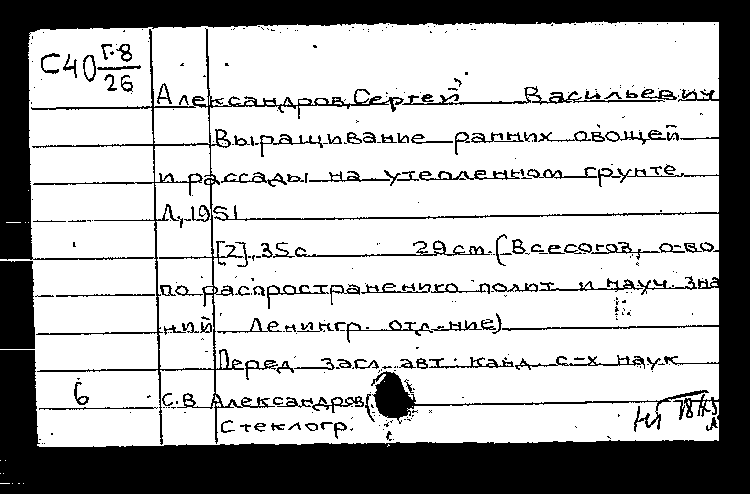 С40 Г-8
26
Александров, Сергей Васильевич
Выращивание ранних овощей
и рассады на утепленном грунте.
Л, 1951
[2], 35с. 29см. (Всесоюз, о-во
по распространению полит и науч. зна
ний Ленингр. отд-ние)
Перед загл. авт: канд с-х наук
6 С.В Александров
Стеклогр.